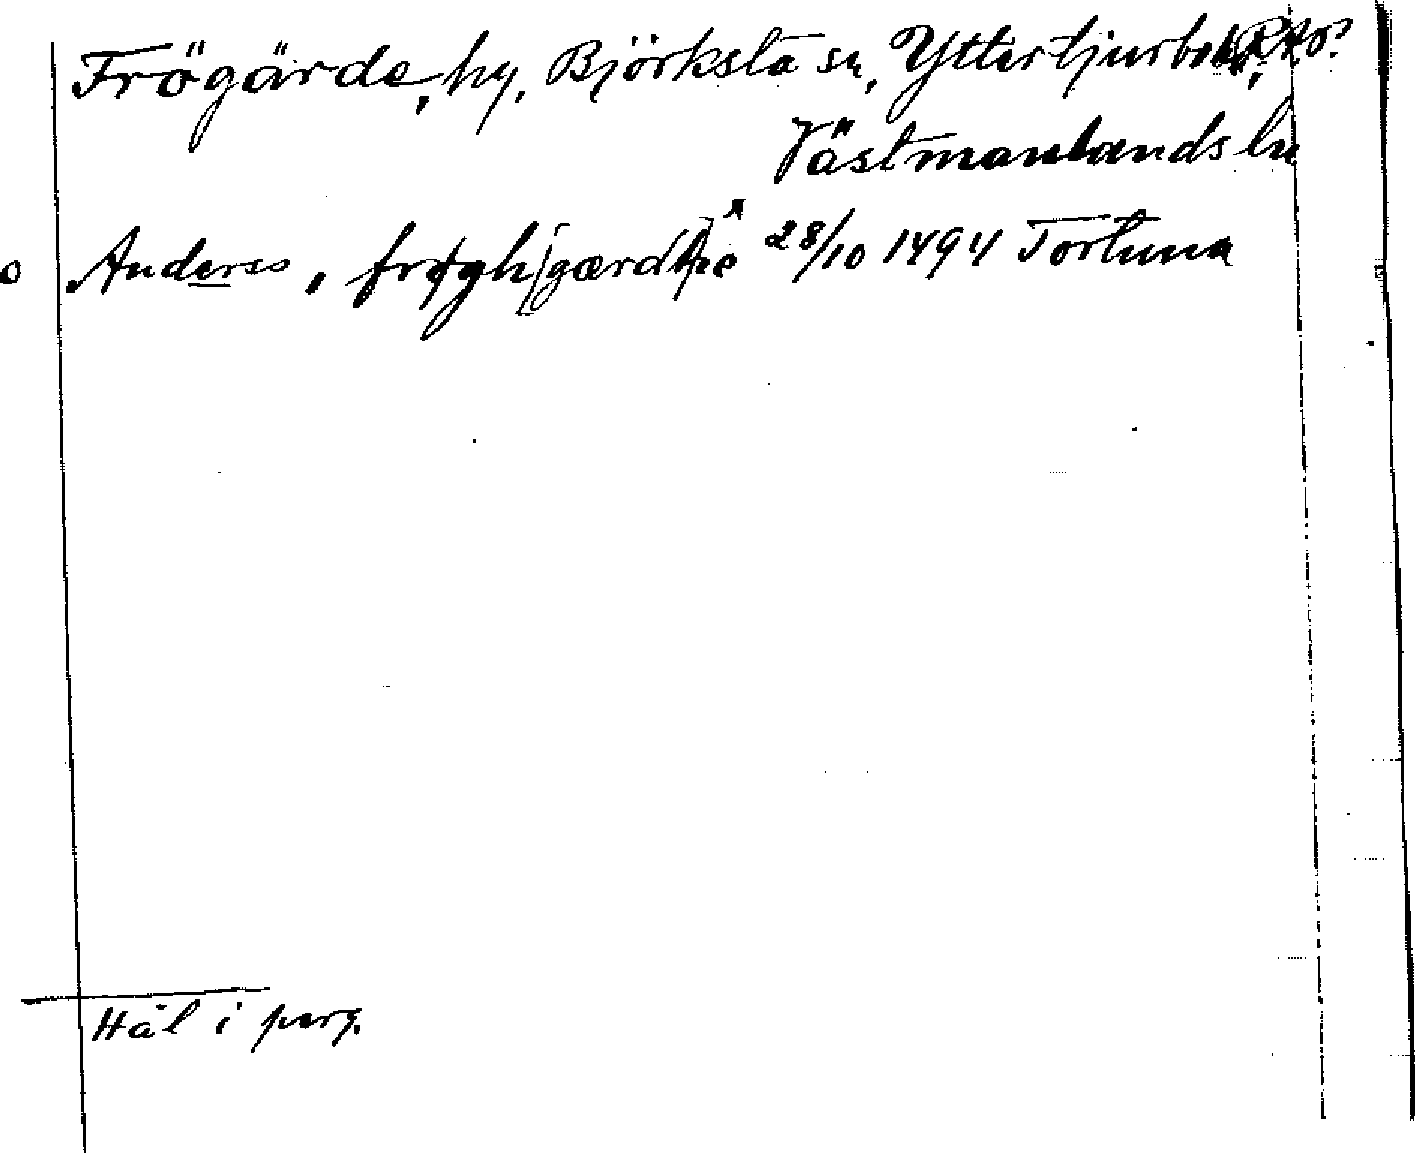 Frögärde, by, Björksta sn, Yttertjurbo hd,
Västmanlands län
o Anderss, i frøgh[gærdh]e ˣ 28/10 1494 Tortuna
Hål i perg.